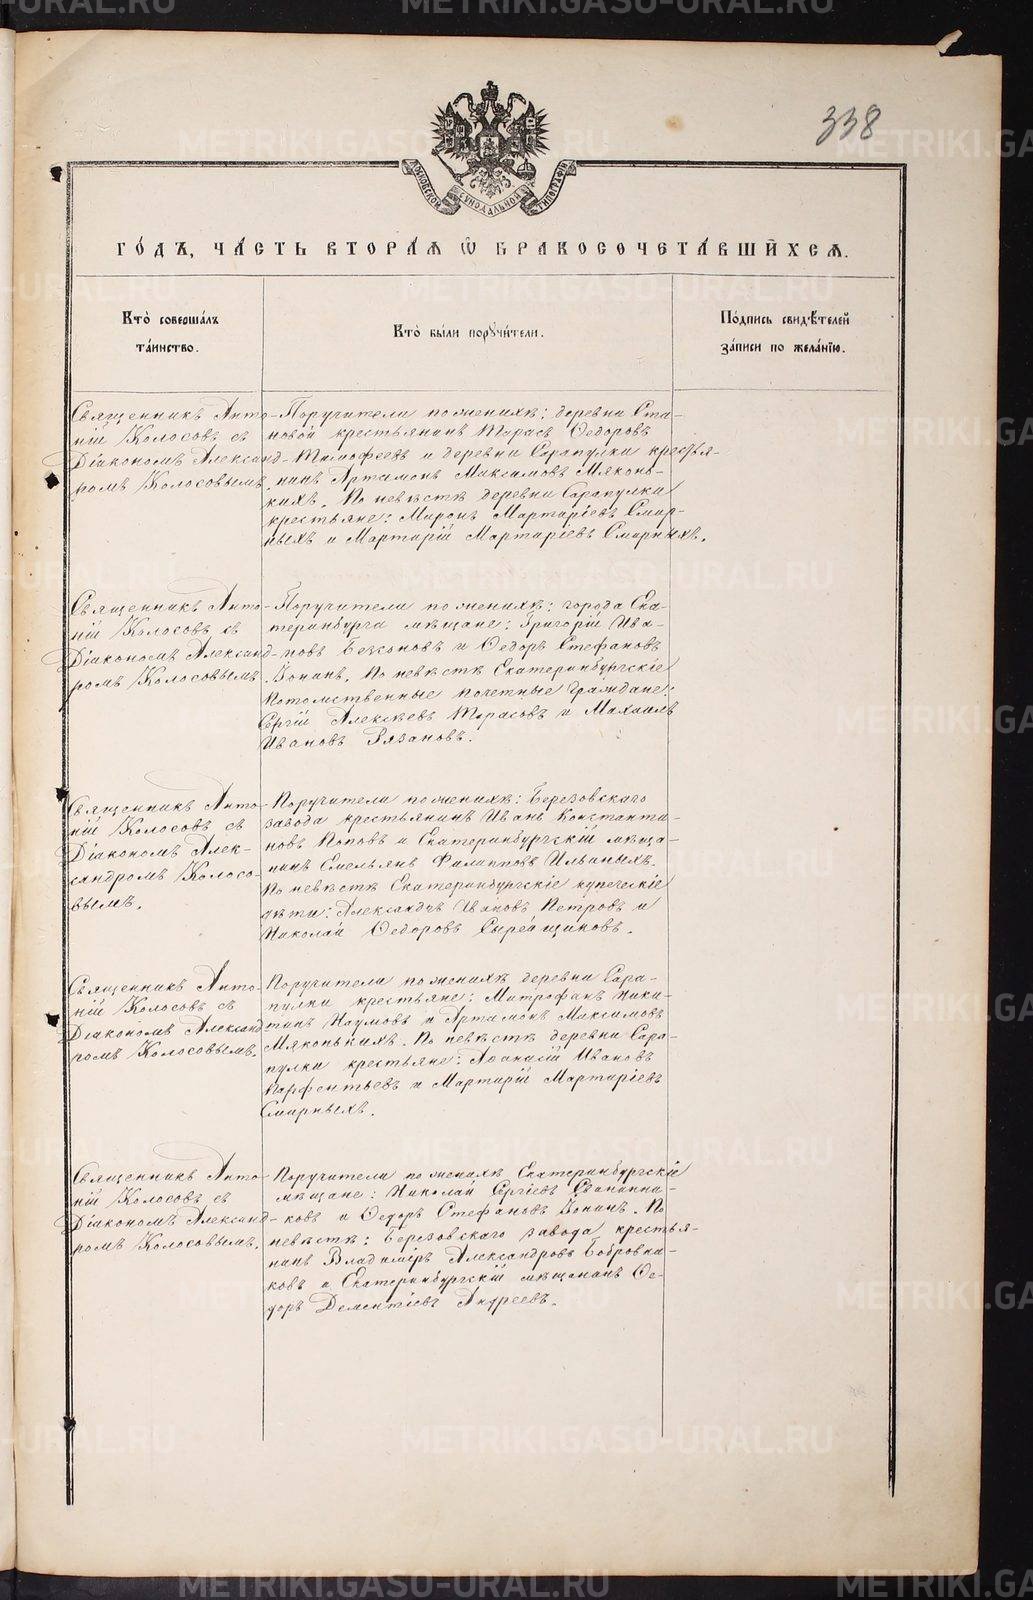 338
МОСКОВСКОЙ СѴНОДАЛЬНОЙ ТИПОГРАФІИ
ГО́ДЪ, ЧА́СТЬ ВТОРА́Я Ѡ҆ БРАКОСОЧЕТА́ВШИХСЯ.
Кто̀ соверша́лъ
та́инство.
Кто̀ бы́ли порꙋчи́тели.
По́дпись свидѣ́телей
за́писи по жела́нїю.
Священникъ Анто-
ній Колосовъ съ
Діакономъ Александ-
ромъ Колосовымъ.
Поручители по женихѣ: деревни Ста-
новой крестьянинъ Тарасъ Ѳедоровъ
Тимофеевъ и деревни Сарапулки крестья-
нинъ Артамонъ Максимовъ Мяконь-
кихъ. По невѣстѣ деревни Сарапулки
крестьяне: Миронъ Мартаріевъ Смир-
ныхъ и Мартарій Мартаріевъ Смирныхъ.
Священникъ Анто-
ній Колосовъ съ
Діакономъ Александ-
ромъ Колосовымъ.
Поручители по женихѣ: города Ека-
теринбурга мѣщане: Григорій Ива-
новъ и Ѳедоръ Стефановъ
Зонинъ. По невѣстѣ Екатеринбургскіе
потомственные почетные граждане:
Сергій Алексѣевъ Тарасовъ и Михаилъ
Ивановъ Рязановъ.
Священникъ Анто-
ній Колосовъ съ
Діакономъ Алек-
сандромъ Колосо-
вымъ.
Поручители по женихѣ: Березовскаго
завода крестьянинъ Иванъ Константи-
новъ Поповъ и Екатеринбургскій мѣща-
нинъ Емельянъ Филипповъ Ильиныхъ.
По невѣстѣ Екатеринбургскіе купеческіе
дѣти: Александръ Ивановъ Петровъ и
Николай Ѳедоровъ Сырейщиковъ.
Священникъ Анто-
ній Колосовъ съ
Діакономъ Александ-
ромъ Колосовымъ.
Поручители по женихѣ деревни Сара-
пулки крестьяне: Митрофанъ Ники-
тинъ Наумовъ и Артамонъ Максимовъ
Мяконькихъ. По невѣстѣ деревни Сара-
пулки крестьяне: Аѳанасій Ивановъ
Парфентьевъ и Мартарій Мартаріевъ
Смирныхъ.
Священникъ Анто-
ній Колосовъ съ
Діакономъ Александ-
ромъ Колосовымъ.
Поручители по женихѣ Екатеринбургскіе
мѣщане: Николай Сергіевъ
и Ѳедоръ Стефановъ Зонинъ. По
невѣстѣ: Березовскаго завода крестья-
нинъ Владиміръ Александровъ Бобровни-
ковъ и Екатеринбургскій мѣщанинъ Ѳе-
доръ Дементіевъ Андреевъ.
METRIKI.GASO-URAL.RU